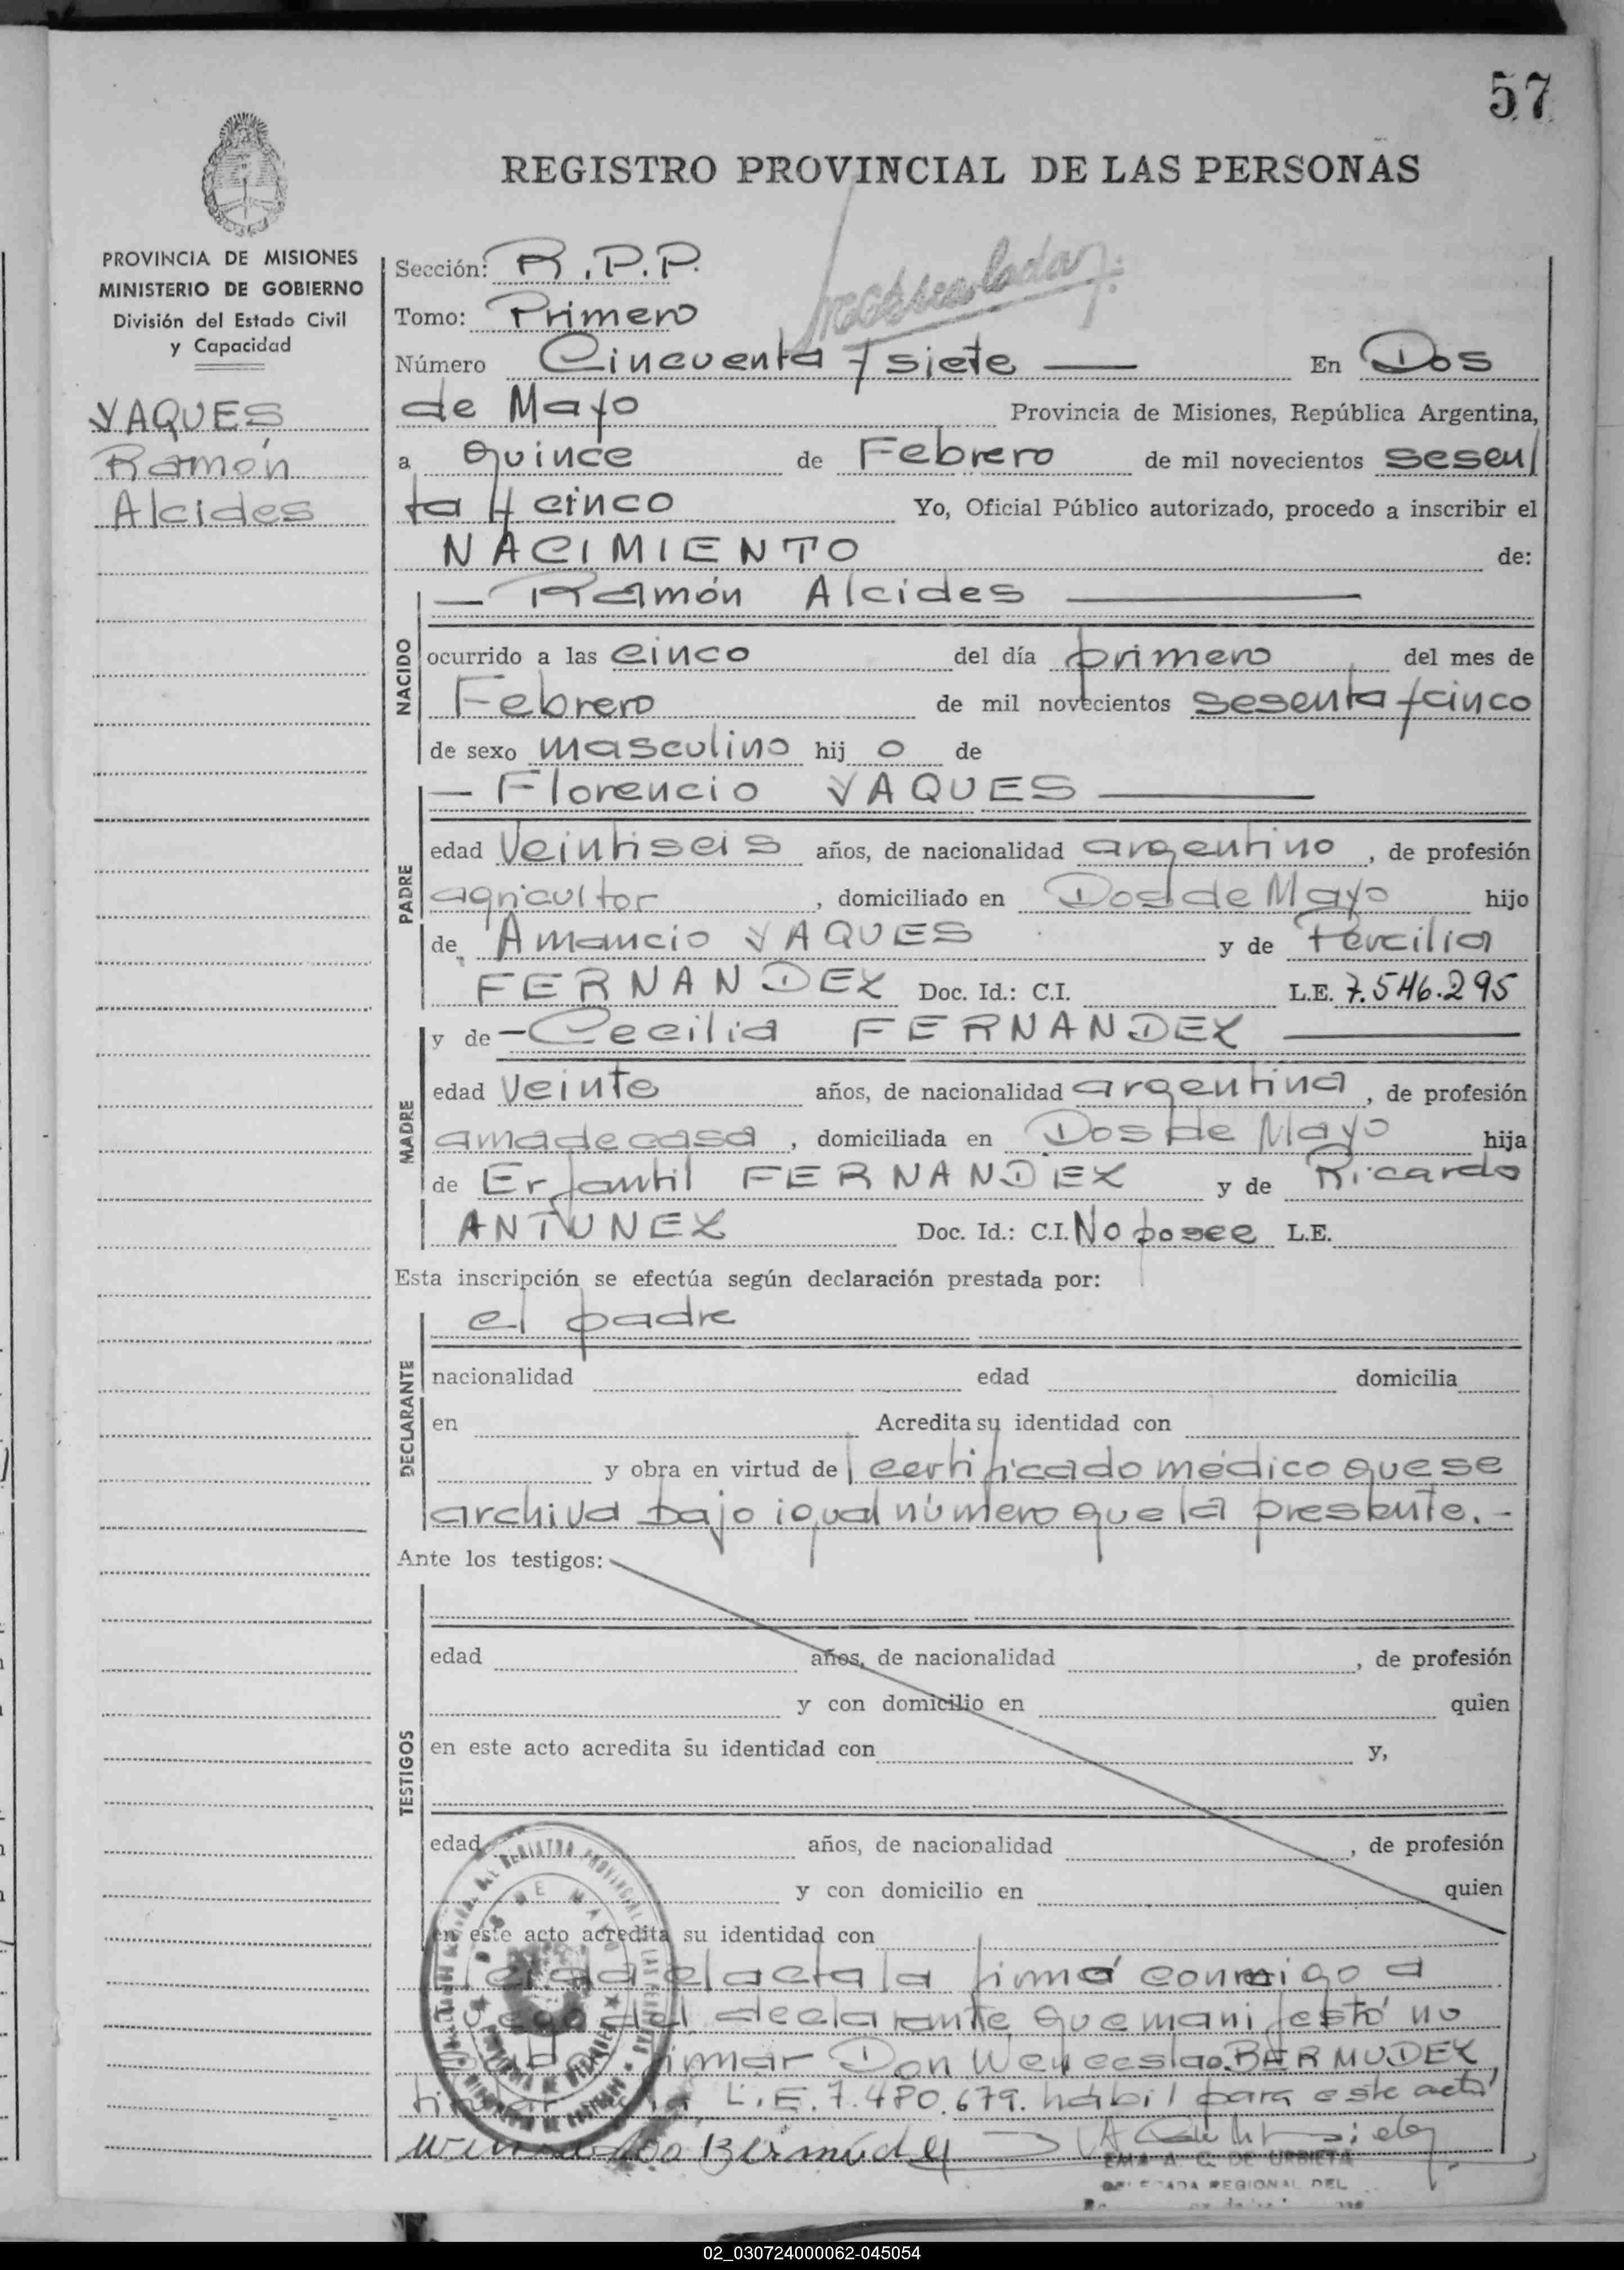 57
REGISTRO PROVINCIAL DE LAS PERSONAS
PROVINCIA DE MISIONES
MINISTERIO DE GOBIERNO
División del Estado Civil
y Capacidad
YAQUES
Ramón
Alcides
Sección: R.P.P.
Tomo: Primero
Número Cincuenta y siete — En Dos
de Mayo Provincia de Misiones, República Argentina,
a quince de Febrero de mil novecientos sesen
ta y cinco Yo, Oficial Público autorizado, procedo a inscribir el
NACIMIENTO de:
— Ramón Alcides —
NACIDO
ocurrido a las cinco del día primero del mes de
Febrero de mil novecientos sesenta y cinco
de sexo masculino hij o de
— Florencio YAQUES —
PADRE
edad Veintiseis años, de nacionalidad argentino, de profesión
agricultor, domiciliado en Dos de Mayo hijo
de Amancio YAQUES y de Percilia
FERNANDEZ Doc. Id.: C.I. L.E. 7.546.295
y de — Cecilia FERNANDEZ —
MADRE
edad Veinte años, de nacionalidad argentina, de profesión
ama de casa, domiciliada en Dos de Mayo hija
de FERNANDEZ y de Ricarda
ANTUNEZ Doc. Id.: C.I. No posee L.E.
Esta inscripción se efectúa según declaración prestada por:
el padre
DECLARANTE
nacionalidad edad domicilia
en Acredita su identidad con
y obra en virtud de certificado médico que se
archiva bajo igual número que la presente.-
Ante los testigos:
TESTIGOS
edad años, de nacionalidad , de profesión
y con domicilio en quien
en este acto acredita su identidad con y,
edad años, de nacionalidad , de profesión
y con domicilio en quien
en este acto acredita su identidad con
Leida el acta la firma conmigo a
ruego del declarante que manifestó no
firmar Don Wenceslao BERMUDEZ
L.E. 7.480.679. hábil para este acto
Wenceslao Bermúdez
EMA A. C. DE URBIETA
DELEGADA REGIONAL DEL
02_030724000062-045054